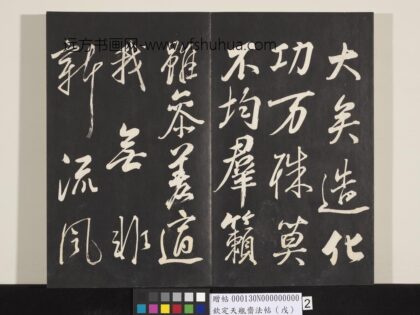 大矣造化
功万殊莫
不均群籁
雖参差適
我無非
新流風
远方书画网 www.yfshuhua.com
贈帖 000130N000000000
欽定天瓶齋法帖(戊)
2